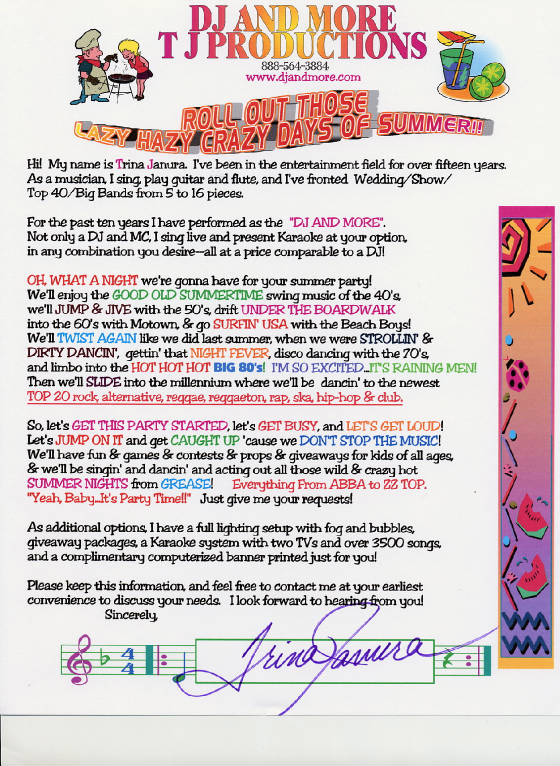 DJ AND MORE
T J PRODUCTIONS
888-564-3884
www.djandmore.com
ROLL OUT THOSE
LAZY HAZY CRAZY DAYS OF SUMMER!!
Hi! My name is Trina Janura. I've been in the entertainment field for over fifteen years.
As a musician, I sing, play guitar and flute, and I've fronted Wedding/Show/
Top 40/Big Bands from 5 to 16 pieces.
For the past ten years I have performed as the "DJ AND MORE".
Not only a DJ and MC, I sing live and present Karaoke at your option,
in any combination you desire—all at a price comparable to a DJ!
OH, WHAT A NIGHT we're gonna have for your summer party!
We'll enjoy the GOOD OLD SUMMERTIME swing music of the 40's,
we'll JUMP & JIVE with the 50's, drift UNDER THE BOARDWALK
into the 60's with Motown, & go SURFIN' USA with the Beach Boys!
We'll TWIST AGAIN like we did last summer, when we were STROLLIN' &
DIRTY DANCIN', gettin' that NIGHT FEVER, disco dancing with the 70's,
and limbo into the HOT HOT HOT BIG 80's! I'M SO EXCITED...IT'S RAINING MEN!
Then we'll SLIDE into the millennium where we'll be dancin' to the newest
TOP 20 rock, alternative, reggae, reggaeton, rap, ska, hip-hop & club.
So, let's GET THIS PARTY STARTED, let's GET BUSY, and LET'S GET LOUD!
Let's JUMP ON IT and get CAUGHT UP 'cause we DON'T STOP THE MUSIC!
We'll have fun & games & contests & props & giveaways for kids of all ages,
& we'll be singin' and dancin' and acting out all those wild & crazy hot
SUMMER NIGHTS from GREASE! Everything From ABBA to ZZ TOP.
"Yeah, Baby...It's Party Time!!" Just give me your requests!
As additional options, I have a full lighting setup with fog and bubbles,
giveaway packages, a Karaoke system with two TVs and over 3500 songs,
and a complimentary computerized banner printed just for you!
Please keep this information, and feel free to contact me at your earliest
convenience to discuss your needs. I look forward to hearing from you!
Sincerely,
4
4
Trina Janura